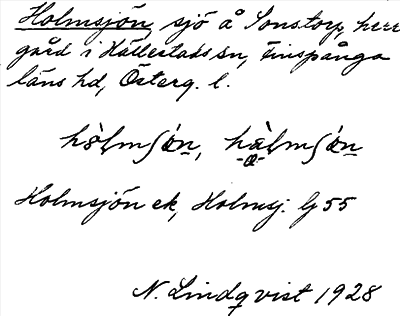 Holmsjön, sjö å Sonstorp, herr
gård i Hällestads sn, Finspånga
läns hd, Österg. l.
hòlmʃön, hàlmʃön
-o-
Holmsjön ek, Holmsj. Lg 55
N. Lindqvist 1928